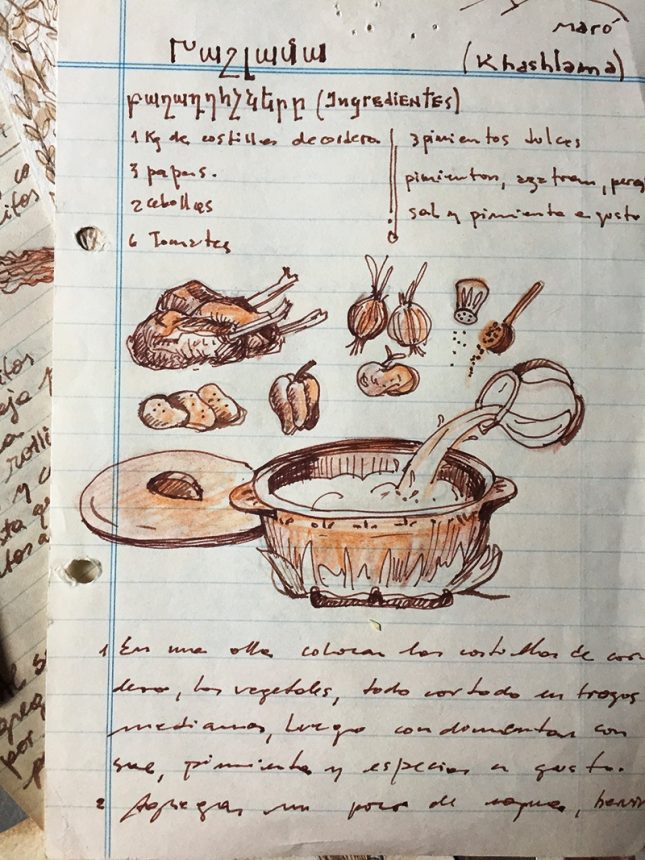 Maró
Խաշլամա (Khashlama)
բաղադրիչները (Ingredientes)
1 Kg de costillas de cordero
3 papas.
2 cebollas
6 Tomates
3 pimientos dulces
pimienton, azafran, perej
sal y pimienta a gusto
1 En una olla colocar las costillas de cor
dero, los vegetales, todo cortado en trozos
medianos, luego condimentar con
sal, pimienta y especias a gusto.
2 Agregar un poco de agua, hervir